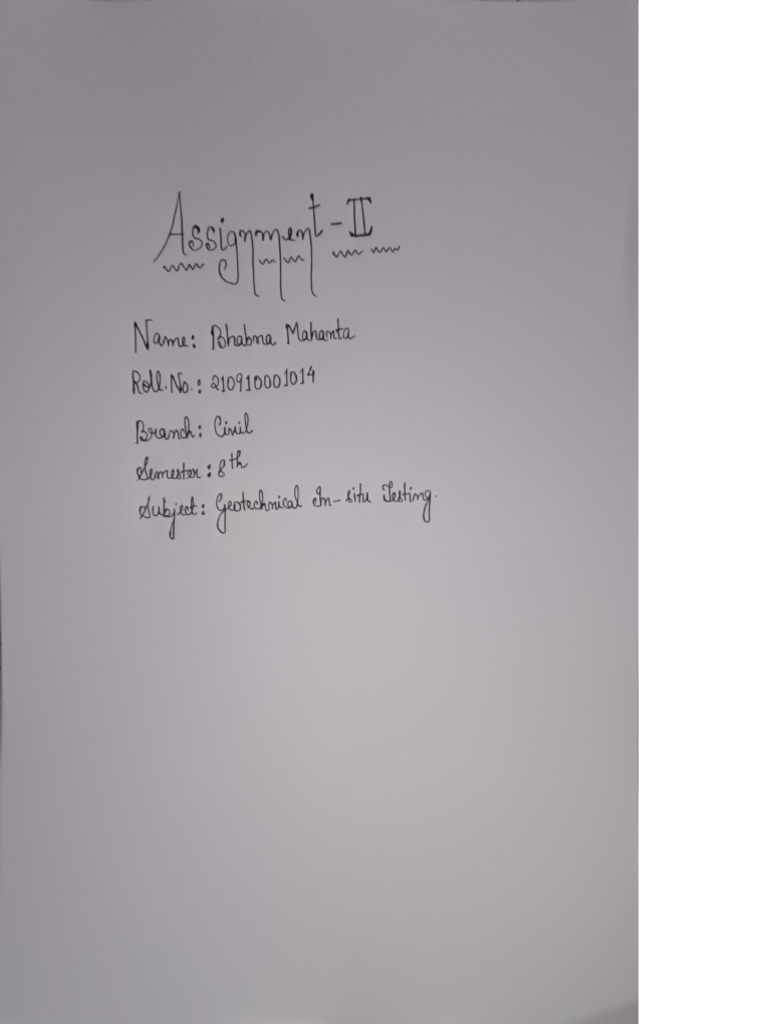 Assignment-II
Name: Bhabna Mahanta
Roll.No.: 210910001014
Branch: Civil
Semester: 8th
Subject: Geotechnical In-situ Testing.